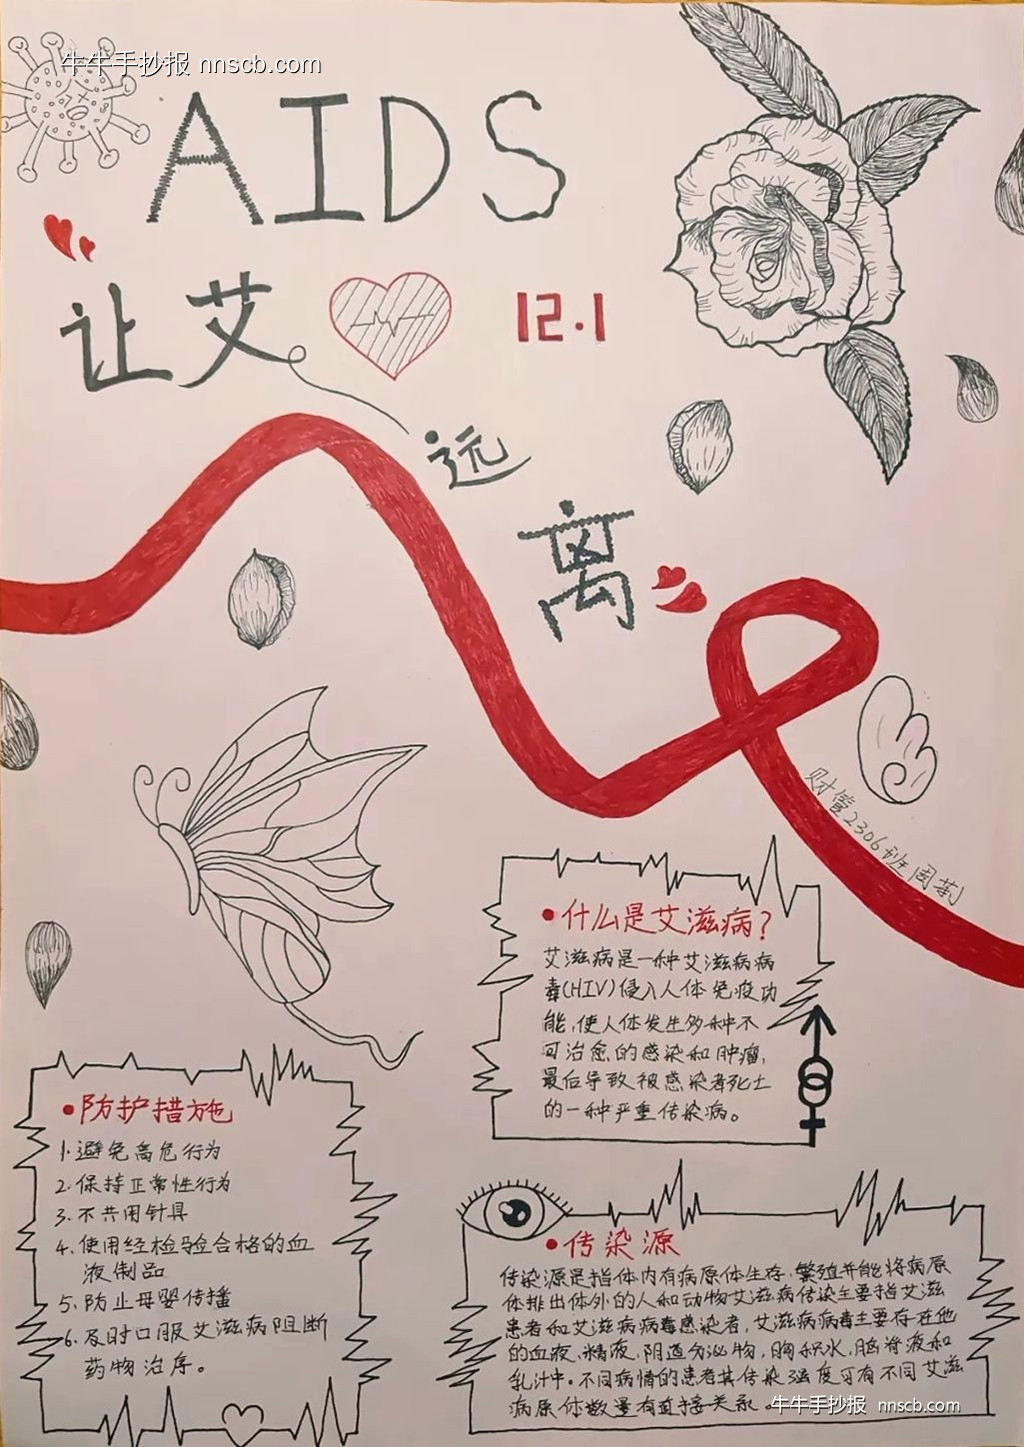 牛牛手抄报 nnscb.com
AIDS
让艾
12.1
远
离
财管2306班 周莉
•什么是艾滋病?
艾滋病是一种艾滋病病
毒(HIV)侵入人体免疫功
能,使人体发生多种不
可治愈的感染和肿瘤,
最后导致被感染者死亡
的一种严重传染病。
•防护措施
1.避免高危行为
2.保持正常性行为
3.不共用针具
4.使用经检验合格的血
液制品
5.防止母婴传播
6.及时口服艾滋病阻断
药物治疗。
•传染源
传染源是指体内有病原体生存,繁殖并能将病原
体排出体外的人和动物艾滋病传染主要指艾滋
患者和艾滋病病毒感染者,艾滋病病毒主要存在他
的血液,精液,阴道分泌物,胸积水,脑脊液和
乳汁中。不同病情的患者其传染强度可有不同艾滋
病原体数量有直接关系。
牛牛手抄报 nnscb.com